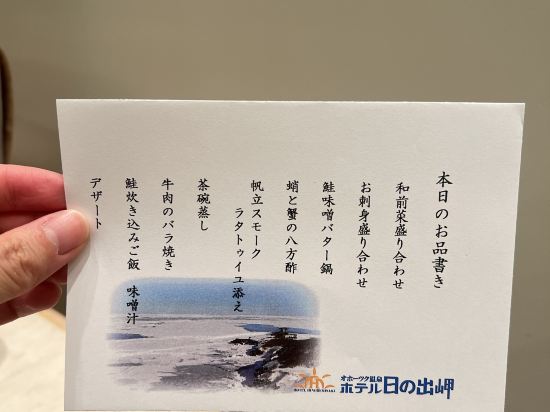 本日のお品書き
和前菜盛り合わせ
お刺身盛り合わせ
鮭味噌バター鍋
蛸と蟹の八方酢
帆立スモーク
ラタトゥイユ添え
茶碗蒸し
牛肉のバラ焼き
鮭炊き込みご飯 味噌汁
デザート
オホーツク温泉
ホテル日の出岬